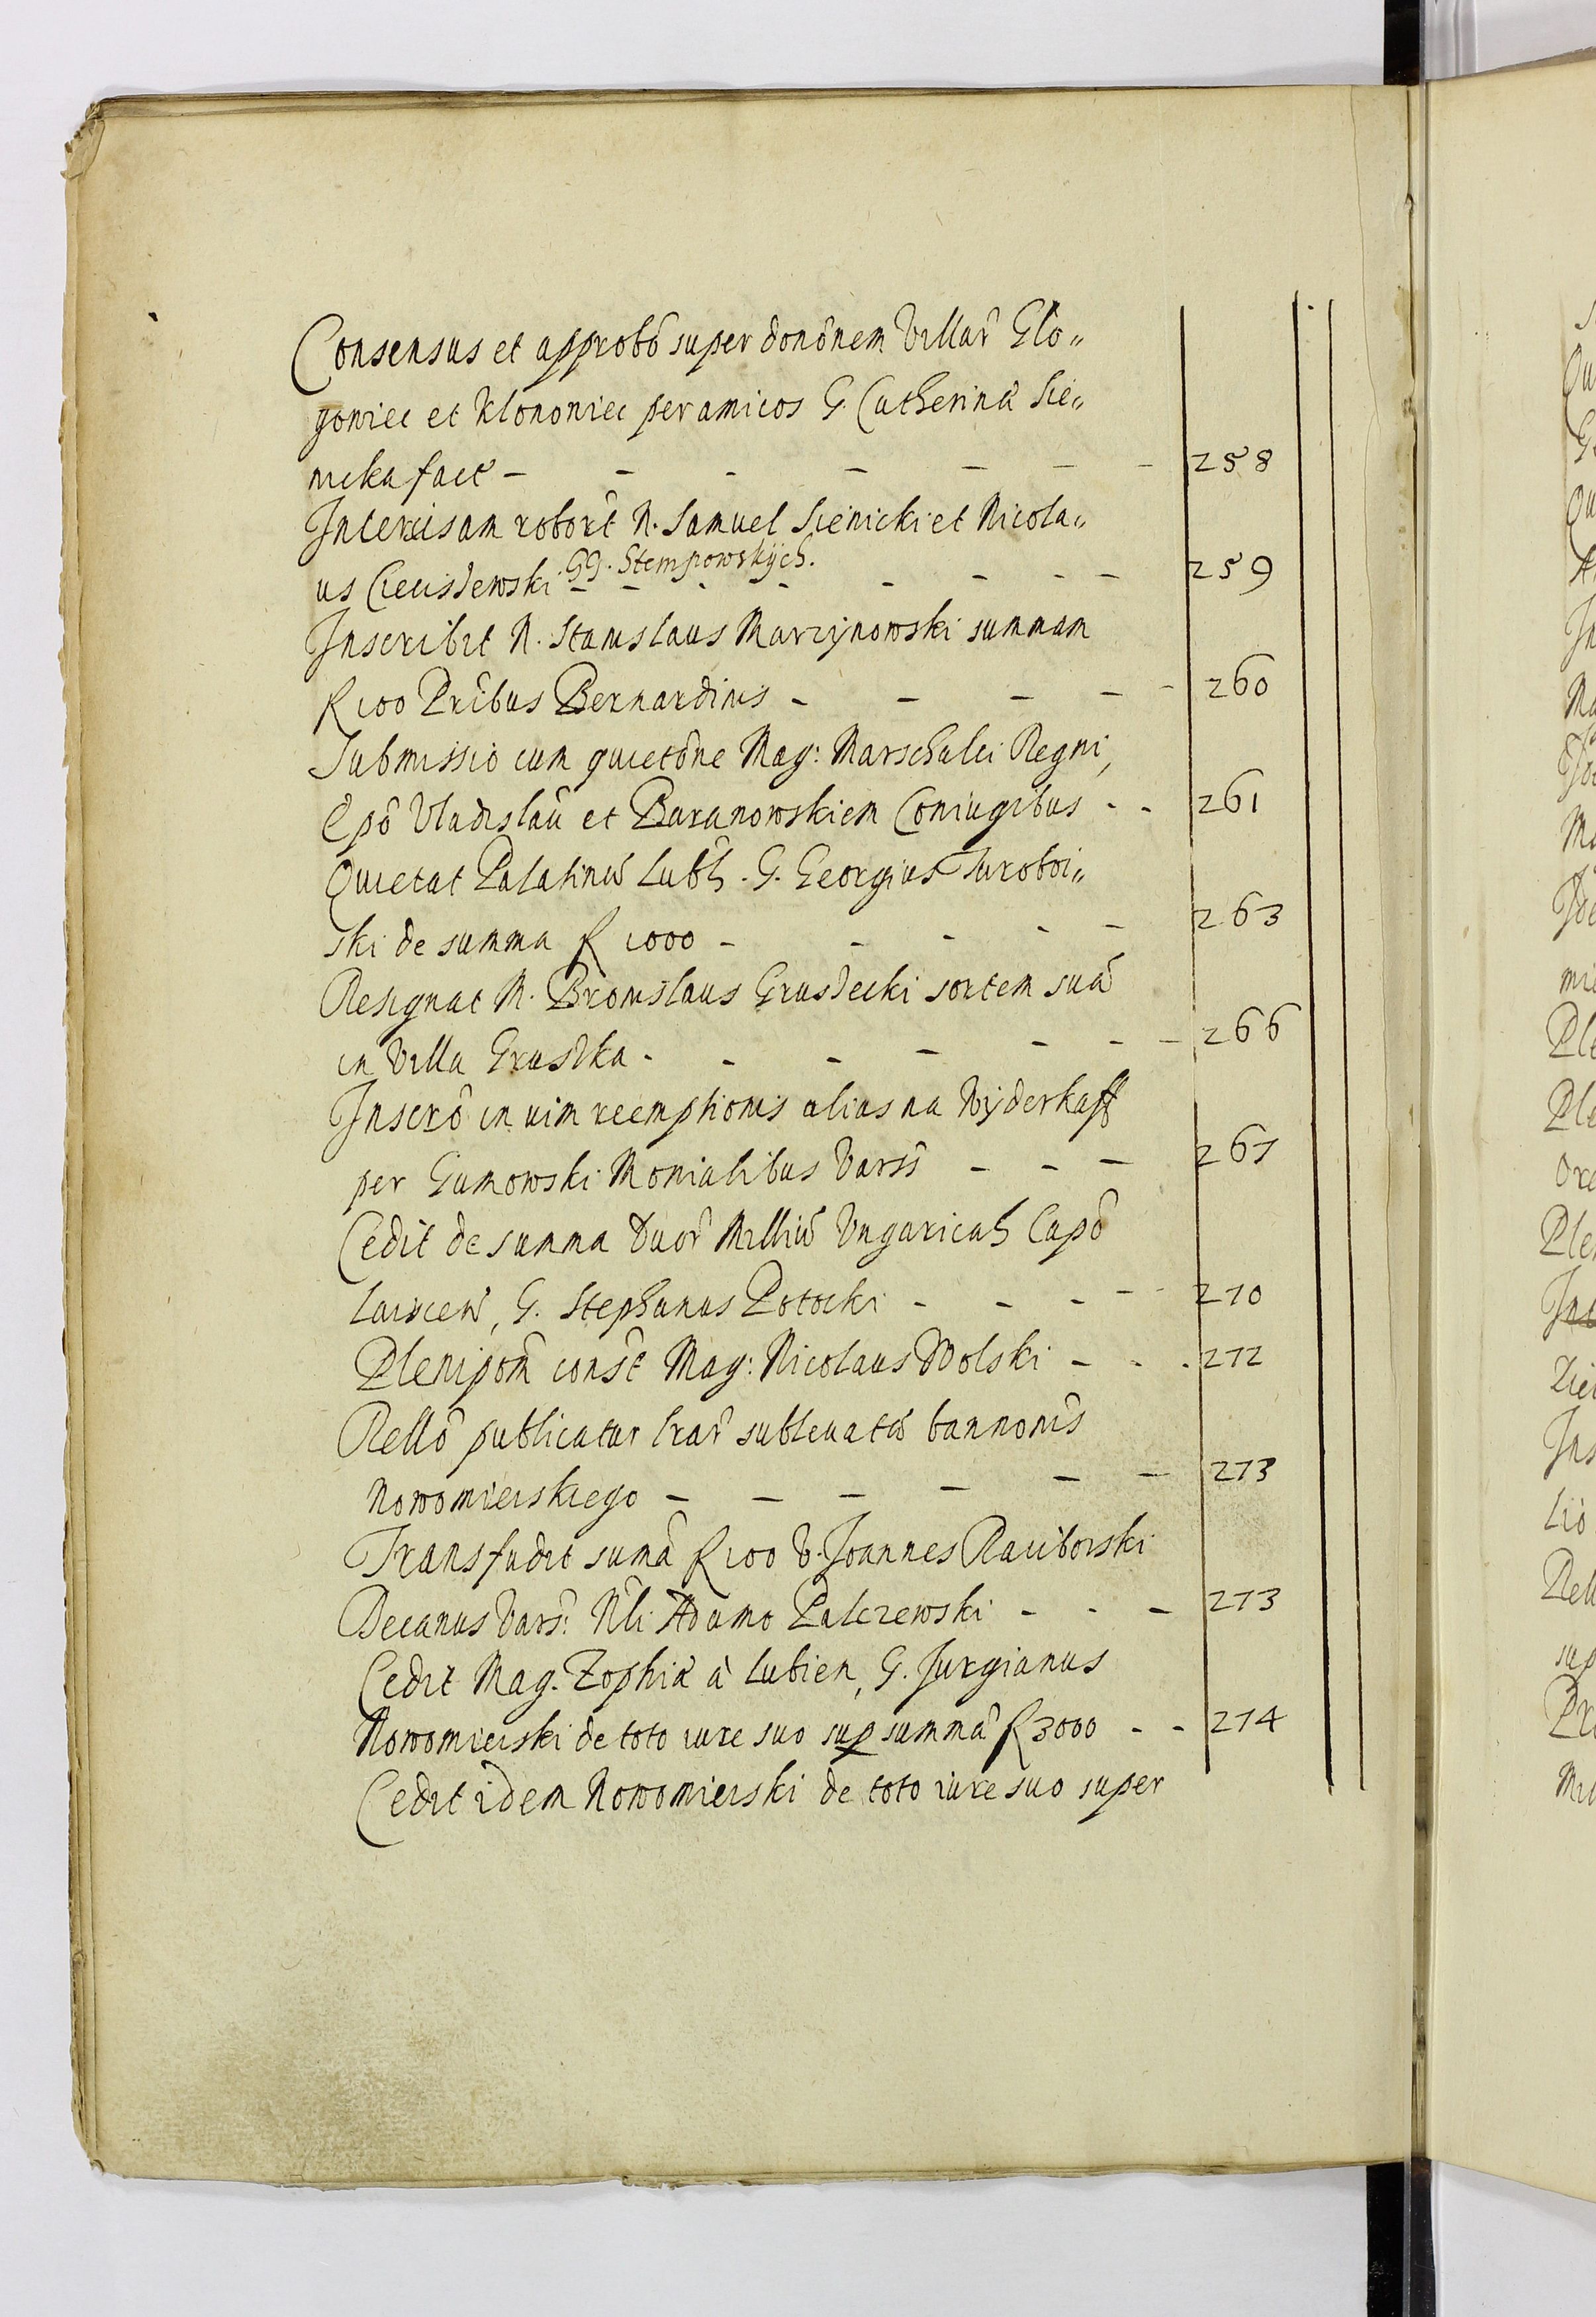 Consensus et approbõ super donõnem Villar̃ Glo„
goniec et Klononiec per amicos G. Catherinã Sie„
nicka fact̃ - - - - - - - 258
Intercisam robor̃t N. Samuel Sienicki et Nicola„
us Cieciszewski GG. Stempowskÿch. - - - - - - - 259
Inscribit N. Stanislaus Marzÿnowski summam
R 100 Pr̃ibus Bernardinis - - - - - 260
Submissio cum quietõne Mag: Marschalci Regni,
Epõ Vladislaũ et Baranowskiem Coniugibus - - 261
Quietat Palatinũ Lubl̃. G. Georgius Turoboi„
ski de summa R 1000 - - - - - 263
Resignat N. Bronislaus Gruszecki sortem suã
in Villa Gruszka - - - - - - - 266
Inscrõ in uim reemptionis alias na Wÿderkaff
per Gumowski Monialibus Vars̃ - - - 267
Cedit de summa Duor̃ Milliũ Vngaricaḻ Capõ
Lauicen̄, G. Stephanus Potocki - - - - 270
Plenipom̃ const̃ Mag: Nicolaus Wolski - - - 272
Rellõ publicatur lrar̃ subleuatũ bannonis
Nowomieiskiego - - - - - - 273
Transfudit sumã R 100 V. Joannes Raciborski
Decanus Vars: Nli Adamo Palczewski - - - 273
Cedit Mag. Zophiã à Lubien, G. Jurgianus
Nowomieiski de toto iure suo sup summã R 3000 - - 274
Cedit idem Nowomieiski de toto iure suo super